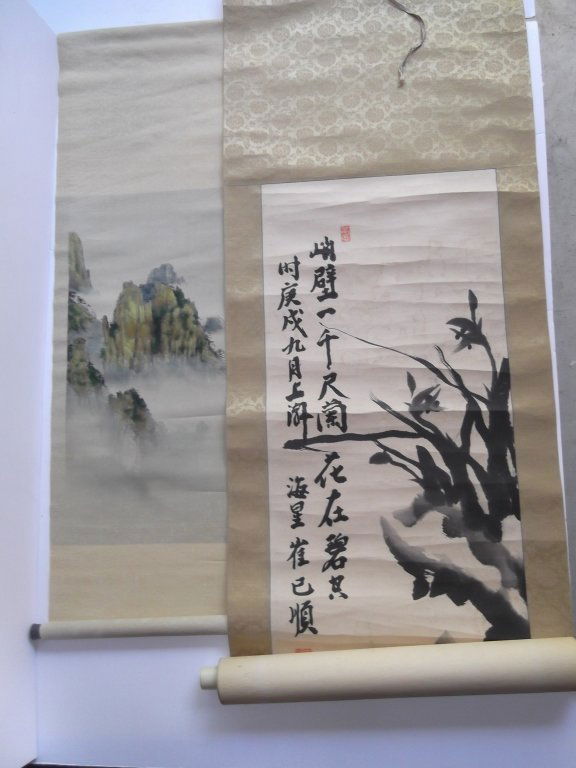 峭壁一千尺蘭花在碧
时庚戌九月上澣 海星 崔已順